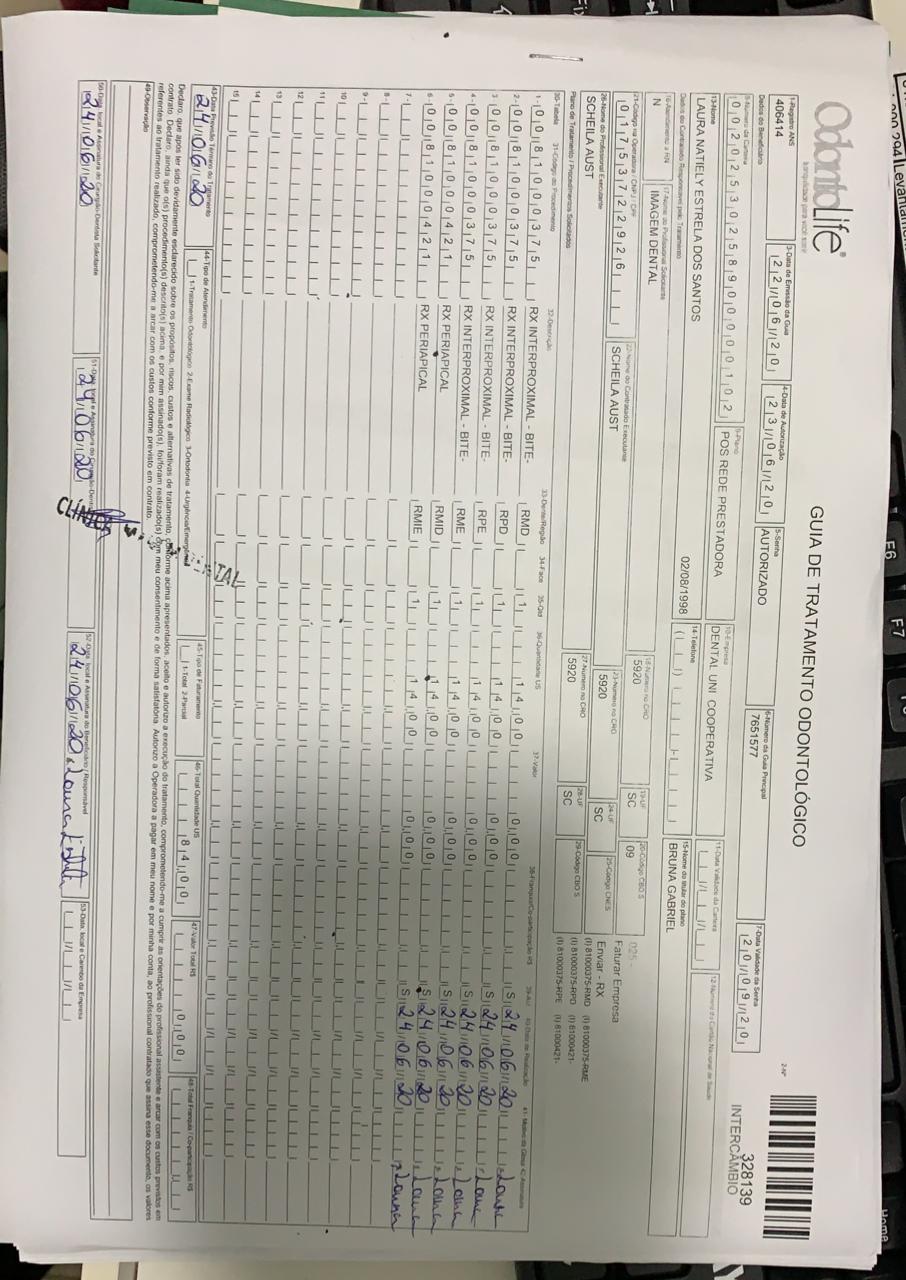 OdontoLife®
tranquilidade para você sorrir
GUIA DE TRATAMENTO ODONTOLÓGICO
2-Nº
328139
INTERCÂMBIO
1-Registro ANS
406414
3-Data de Emissão da Guia
22/06/20
4-Data de Autorização
23/06/20
5-Senha
AUTORIZADO
6-Número da Guia Principal
7651577
7-Data Validade da Senha
20/09/20
Dados do Beneficiário
8-Número da Carteira
00202530258900000102
9-Plano
POS REDE PRESTADORA
10-Empresa
DENTAL UNI COOPERATIVA
11-Data Validade da Carteira
12-Número do Cartão Nacional de Saúde
13-Nome
LAURA NATIELY ESTRELA DOS SANTOS
02/08/1998
14-Telefone
15-Nome do titular do plano
BRUNA GABRIEL
Dados do Contratado Responsável pelo Tratamento
16-Atendimento a RN
N
17-Nome do Profissional Solicitante
IMAGEM DENTAL
18-Número no CRO
5920
19-UF
SC
20-Código CBO S
09
025 -
Faturar Empresa
21-Código na Operadora / CNPJ / CPF
01753722926
22-Nome do Contratado Executante
SCHEILA AUST
23-Número no CRO
5920
24-UF
SC
25-Código CNES
Enviar - RX
26-Nome do Profissional Executante
SCHEILA AUST
27-Número no CRO
5920
28-UF
SC
29-Código CBO S
(I) 81000375-RMD (I) 81000375-RME
(I) 81000375-RPD (I) 81000421-
(I) 81000375-RPE (I) 81000421-
Plano de Tratamento / Procedimentos Solicitados
30-Tabela 31-Código do Procedimento 32-Descrição 33-Dente/Região 34-Face 35-Qtd 36-Quantidade US 37-Valor 38-Franquia/Co-participação R$ 39-Aut 40-Data de Realização 41- Motivo da Glosa 42-Assinatura
1 - 00 81000375 RX INTERPROXIMAL - BITE- RMD 1 14,00 0,00 S 24/06/20 Laura
2 - 00 81000375 RX INTERPROXIMAL - BITE- RPD 1 14,00 0,00 S 24/06/20 Laura
3 - 00 81000375 RX INTERPROXIMAL - BITE- RPE 1 14,00 0,00 S 24/06/20 Laura
4 - 00 81000375 RX INTERPROXIMAL - BITE- RME 1 14,00 0,00 S 24/06/20 Laura
5 - 00 81000421 RX PERIAPICAL RMID 1 14,00 0,00 S 24/06/20 Laura
6 - 00 81000421 RX PERIAPICAL RMIE 1 14,00 0,00 S 24/06/20 Laura
7 -
8 -
9 -
10
11
12
13
14
15
43-Data Previsão Término do Tratamento
24/06/20
44-Tipo de Atendimento
1-Tratamento Odontológico 2-Exame Radiológico 3-Ortodontia 4-Urgência/Emergência
45-Tipo de Faturamento
1-Total 2-Parcial
46-Total Quantidade US
84,00
47-Valor Total R$
0,00
48-Total Franquia / Co-participação R$
Declaro, que após ter sido devidamente esclarecido sobre os propósitos, riscos, custos e alternativas de tratamento, conforme acima apresentados, aceito e autorizo a execução do tratamento, comprometendo-me a cumprir as orientações do profissional assistente e arcar com os custos previstos em
contrato. Declaro, ainda que o(s) procedimento(s) descrito(s) acima, e por mim assinado(s), foi/foram realizado(s) com meu consentimento e de forma satisfatória. Autorizo a Operadora a pagar em meu nome e por minha conta, ao profissional contratado que assina esse documento, os valores
referentes ao tratamento realizado, comprometendo-me a arcar com os custos conforme previsto em contrato.
49-Observação
50-Data, local e Assinatura do Cirurgião-Dentista Solicitante
24/06/20
51-Data, local e Assinatura do Cirurgião-Dentista
24/06/20
52-Data, local e Assinatura do Beneficiário / Responsável
24/06/20
53-Data, local e Carimbo da Empresa
F6
F7
Home